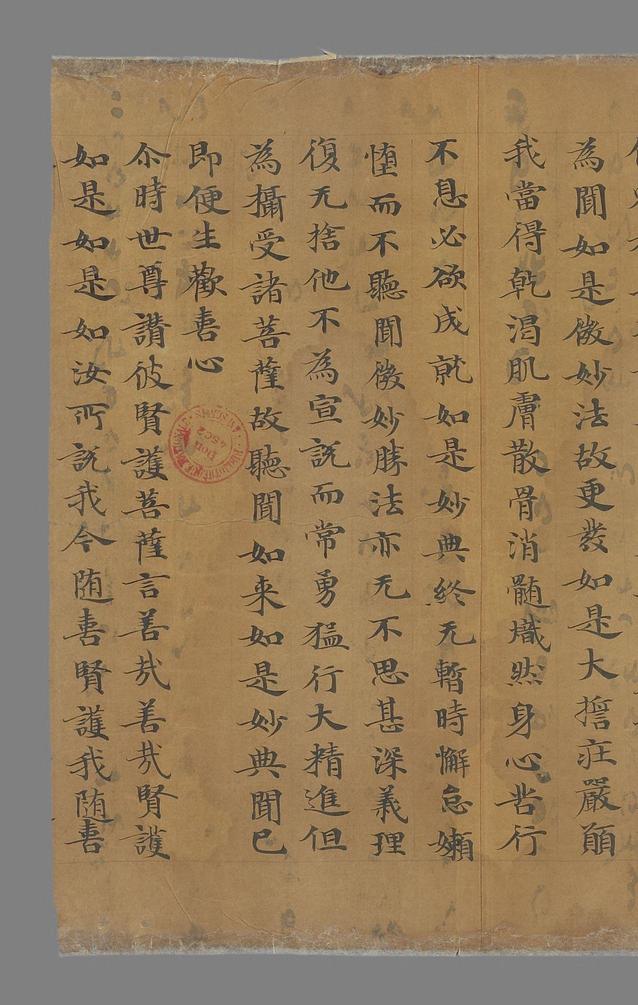 為聞如是微妙法故更發如是大擔莊嚴願
我當得乾渴肌膚散骨消髓熾然身心苦行
不息必欲成就如是妙典終无暫時懈怠嬾
憧而不聽聞微妙勝法亦无不思甚深義理
復无捨他不為宣說而常勇猛行大精進但
為攝受諸菩薩故聽聞如来如是妙典聞已
即便生歡喜心
尒時世尊讚彼賢護菩薩言善㢤善㢤賢護
如是如是如汝所說我今随喜賢護我随喜